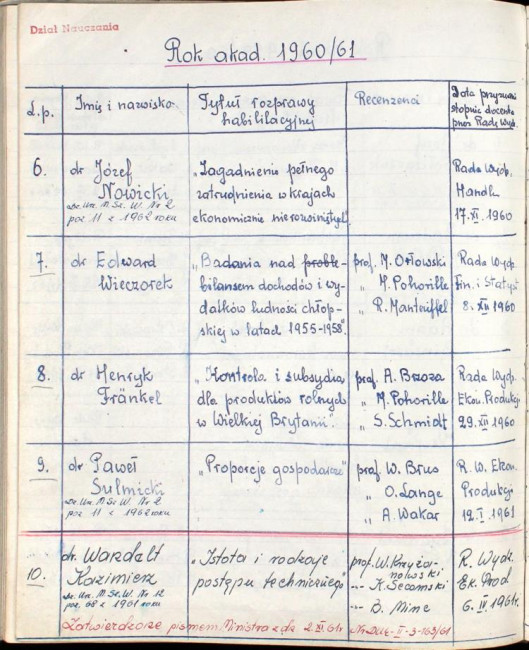 Dział Nauczania
Rok akad. 1960/61
L.p.
Imię i nazwisko
Tytuł rozprawy
habilitacyjnej
Recenzenci
Data przyznania
stopnia docenta
przez Radę Wydz.
6.
dr Józef
Nowicki
Dz. Urz. M. Sz. W. Nr 2
poz 11 z 1962 roku
„Zagadnienie pełnego
zatrudnienia w krajach
ekonomicznie nierozwiniętych"
Rada Wydz.
Handl.
17.VI.1960
7.
dr Edward
Wieczorek
„Badania nad
bilansem dochodów i wy-
datków ludności chłop-
skiej w latach 1955-1958"
prof. M. Orłowski
„ M. Pohorille
„ R. Manteuffel
Rada Wydz.
Fin. i Statyst.
8.XII.1960
8.
dr Henryk
Fränkel
„Kontrola i subsydia
dla produktów rolnych
w Wielkiej Brytanii"
prof. A. Brzoza
„ M. Pohorille
„ S. Schmidt
Rada Wydz.
Ekon. Produkcji
29.XII.1960
9.
dr Paweł
Sulmicki
Dz. Urz. M. Sz. W. Nr 2
poz 11 z 1962 roku
„Proporcje gospodarcze"
prof. W. Brus
„ O. Lange
„ A. Wakar
R. W. Ekon.
Produkcji
12.I.1961
10.
dr. Wardelt
Kazimierz
Dz. Urz. M. Sz. W. Nr 12
poz. 68 z 1961 roku
„Istota i rodzaje
postępu technicznego"
prof. W. Krzyża-
nowski
-„- K. Secomski
-„- B. Minc
R. Wydz.
Ek. Prod
6.IV.1961r.
Zatwierdzone pismem Ministra z dn. 2.XI.61r Nr DUE-II-3-163/61